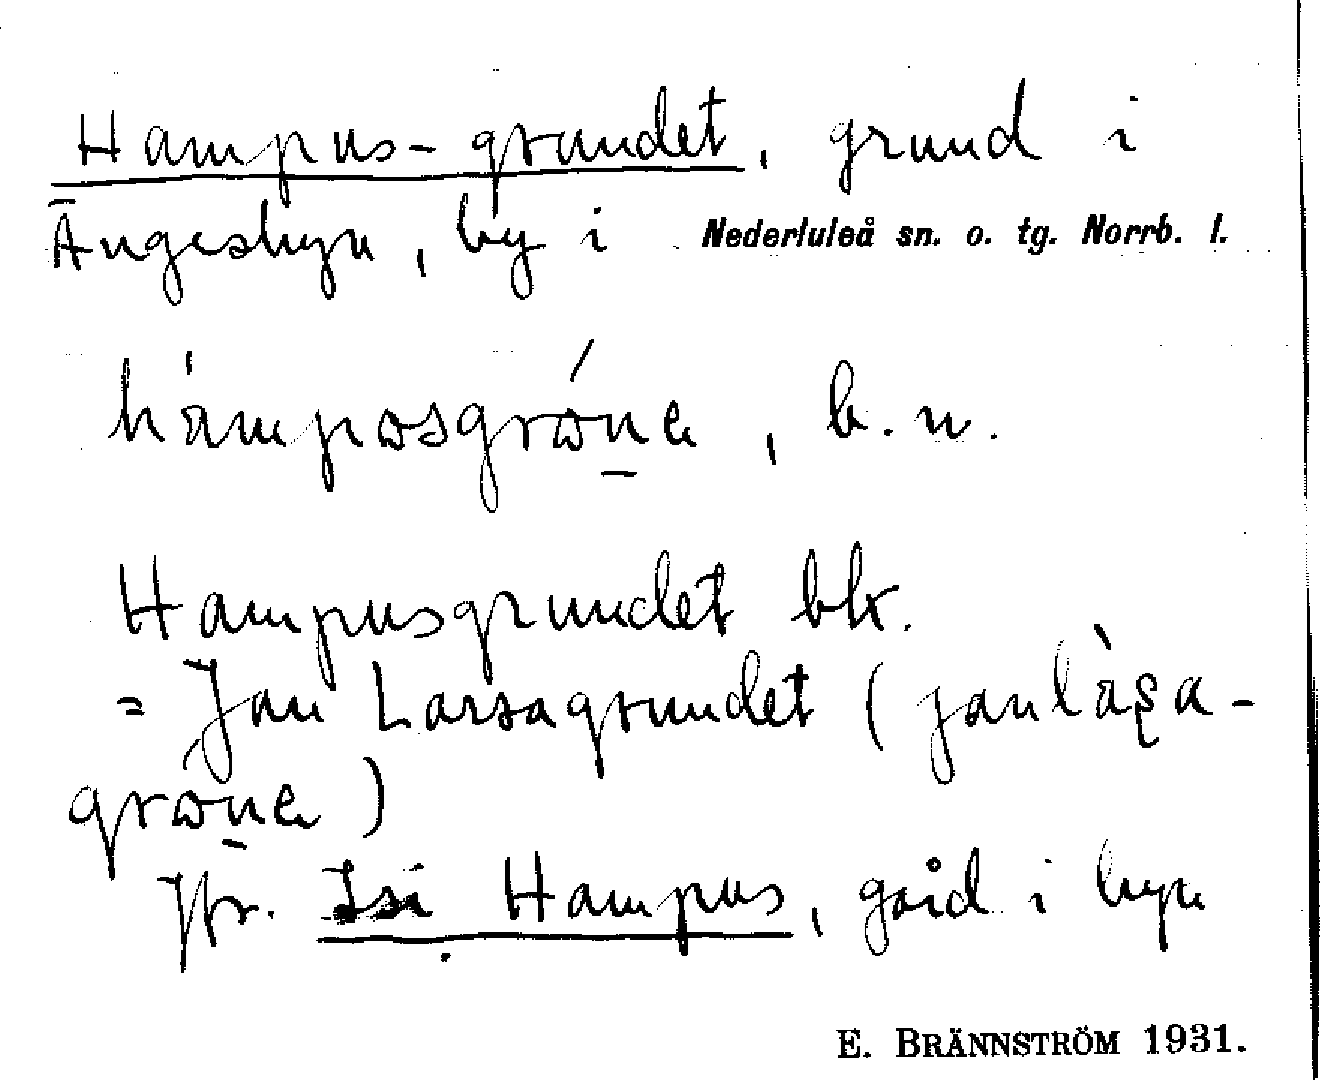 Hampus-grundet, grund i
Ängesbyn, by i Nederluleå sn. o. tg. Norrb. l.
hámposgróne, b.n.
Hampusgrundet blt.
= Jan Larsagrundet (janlàşa-
gröne)
Jfr. Isi Hampus, gård i byn
E. BRÄNNSTRÖM 1931.